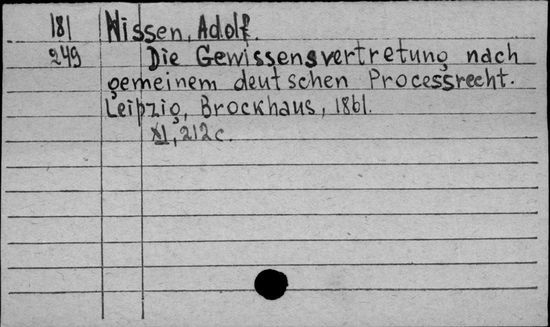 181 Nissen, Adolf.
249 Die Gewissensvertretung nach
gemeinem deutschen Processrecht.
Leipzig, Brockhaus, 1861.
XI, 212 c.